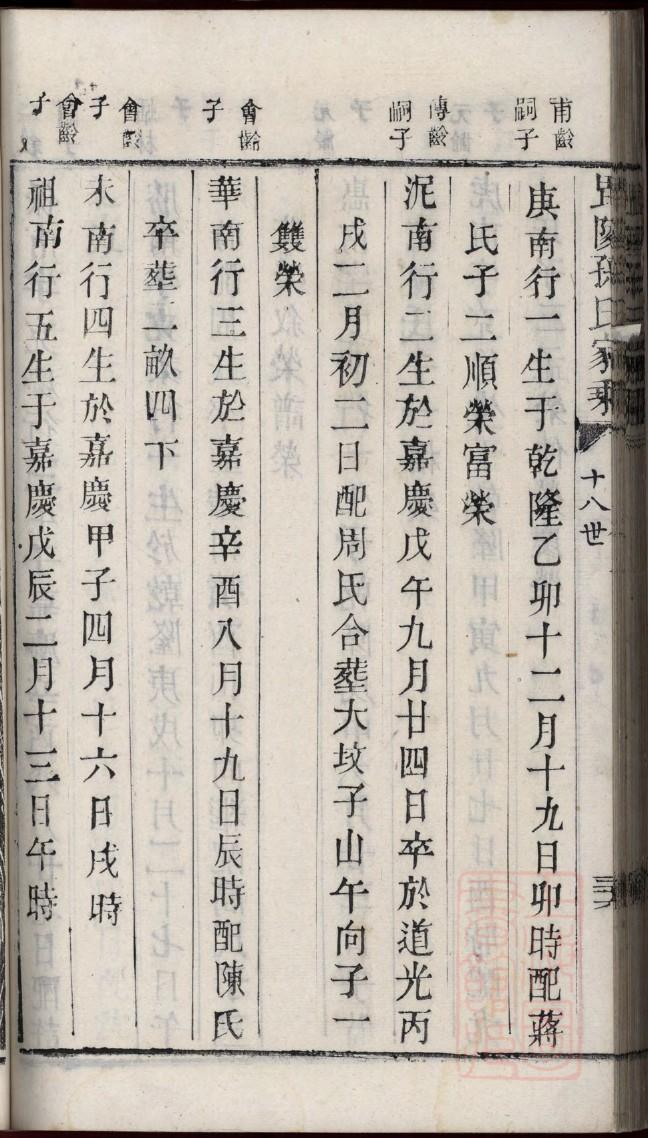 孫氏家乘
十八世
甫齡
嗣子
庚南行一生于乾隆乙卯十二月十九日卯時配蔣
氏子二順榮富榮
傳齡
嗣子
泥南行二生於嘉慶戊午九月廿四日卒於道光丙
戌二月初二日配周氏合塟大坟子山午向子一
雙榮
會齡
子
華南行三生於嘉慶辛酉八月十九日辰時配陳氏
卒塟二畝四下
會齡
子
木南行四生於嘉慶甲子四月十六日戌時
會齡
子
祖南行五生于嘉慶戊辰二月十三日午時